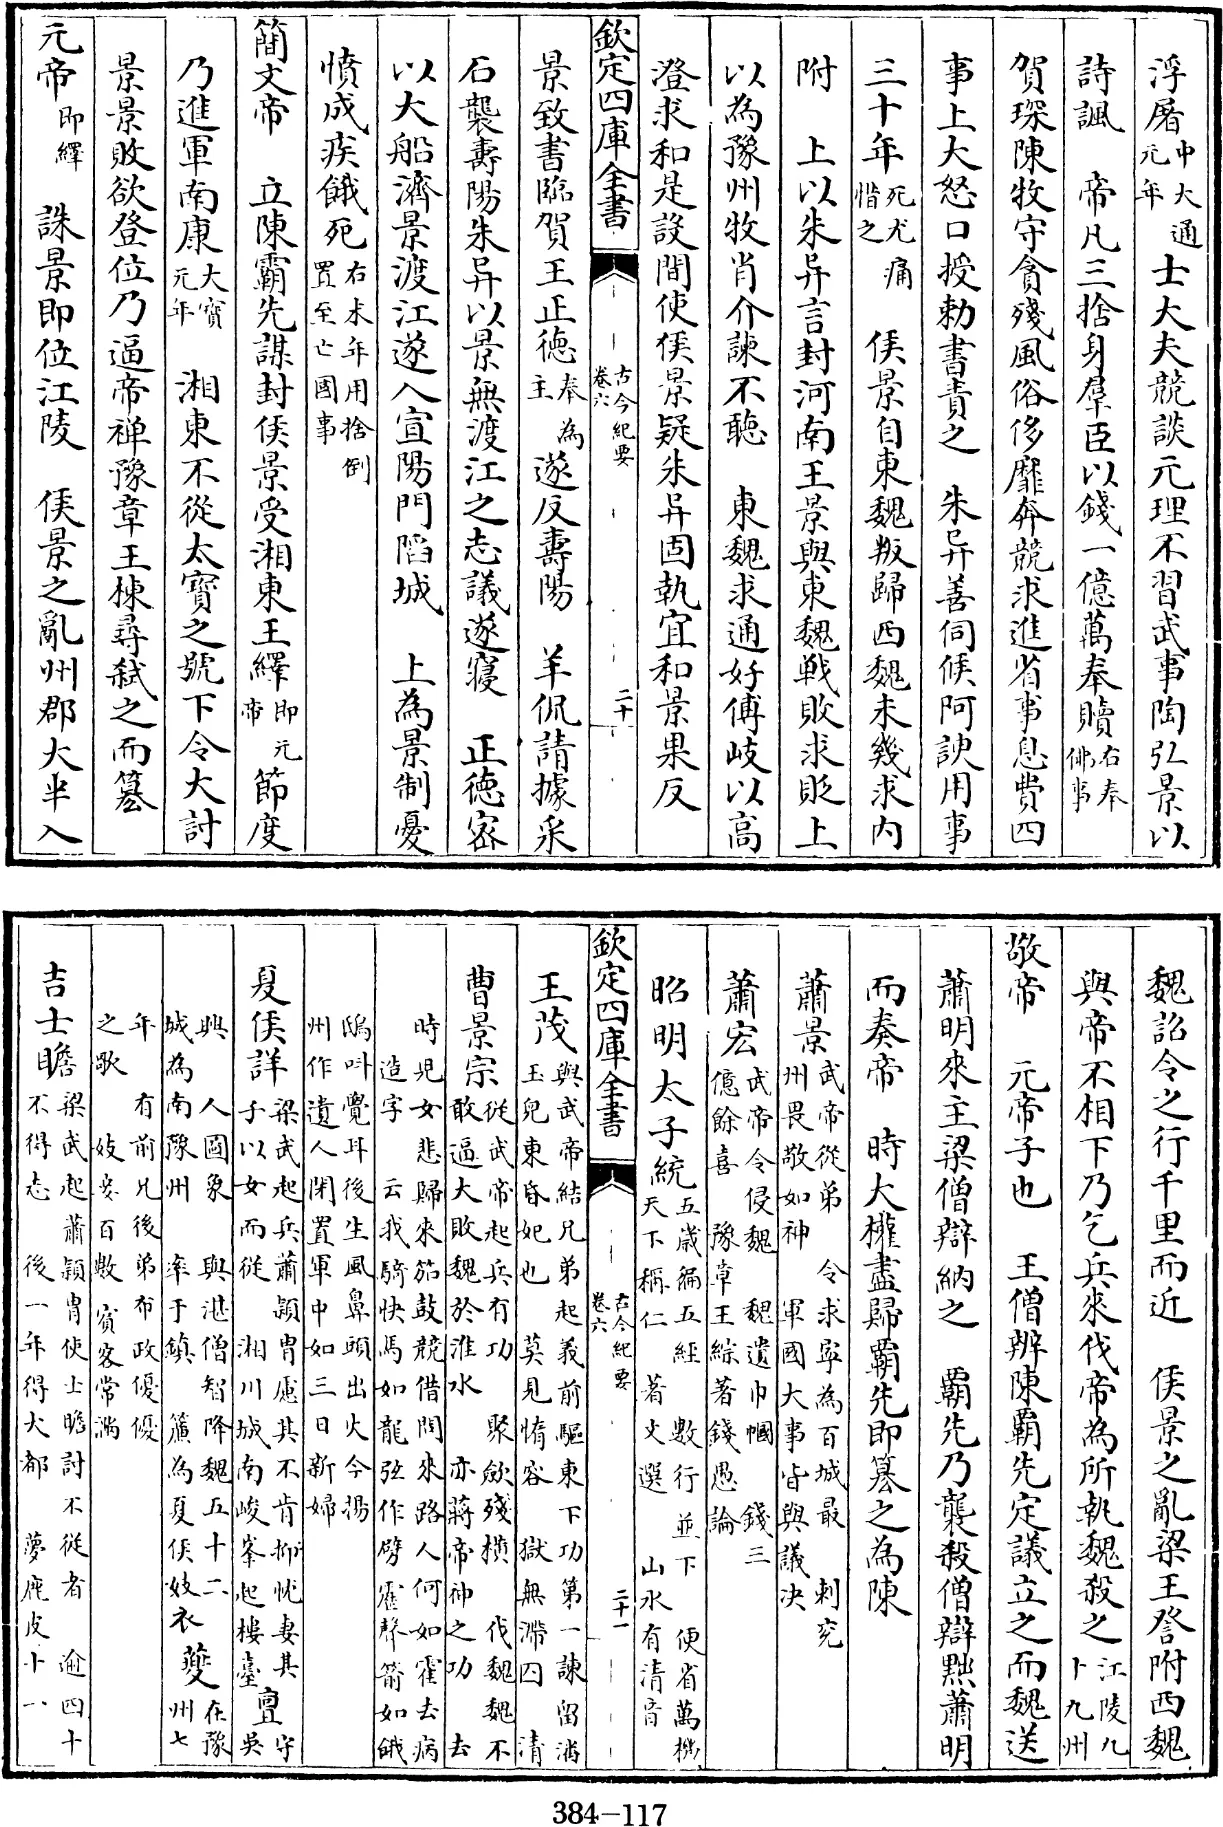 浮屠中大通元年士大夫競談元理不習武事陶弘景以
詩諷　帝凡三捨身羣臣以錢一億萬奉贖右奉佛事
賀琛陳牧守貪殘風俗侈靡奔競求進省事息費四
事上大怒口授勅書責之　朱异善伺候阿諛用事
三十年死尤痛惜之　侯景自東魏叛歸西魏未幾求內
附　上以朱异言封河南王景與東魏戰敗求貶上
以為豫州牧肖介諫不聽　東魏求通好傅岐以高
澄求和是設間使侯景疑朱异固執宜和景果反
欽定四庫全書　古今紀要卷六　二十
景致書臨賀王正德奉為主遂反壽陽　羊侃請據采
石襲壽陽朱异以景無渡江之志議遂寢　正德密
以大船濟景渡江遂入宣陽門陷城　上為景制憂
憤成疾餓死右末年用捨倒置至亡國事
簡文帝　立陳霸先謀封侯景受湘東王繹即元帝節度
乃進軍南康大寶元年　湘東不從太寶之號下令大討
景景敗欲登位乃逼帝禅豫章王棟尋弒之而簒
元帝即繹　誅景即位江陵　侯景之亂州郡大半入
魏詔令之行千里而近　侯景之亂梁王詧附西魏
與帝不相下乃乞兵來伐帝為所執魏殺之江陵八十九州
敬帝　元帝子也　王僧辨陳覇先定議立之而魏送
蕭明來主梁僧辯納之　覇先乃襲殺僧辯黜蕭明
而奏帝　時大權盡歸覇先即簒之為陳
蕭景武帝從弟　令求寧為百城最　刺兖州畏敬如神　軍國大事皆與議决
蕭宏武帝令侵魏　魏遺巾幗　錢三億餘喜　豫章王綜著錢愚論
昭明太子統五歲徧五經　數行並下　便省萬機天下稱仁　著文選　山水有清音
欽定四庫全書　古今紀要卷六　二十一
王茂與武帝結兄弟起義前驅東下功第一諫留潘玉兒東昏妃也　莫見惰容　獄無滯囚　清
曹景宗從武帝起兵有功　聚斂殘橫　伐魏魏不敢逼大敗魏於淮水　亦蔣帝神之功　去
時兒女悲歸來笳鼓競借問來路人何如霍去病造字　云我騎快馬如龍弦作劈靂聲箭如餓
鴟叫覺耳後生風鼻頭出火今揚州作遺人閉置軍中如三日新婦
夏侯詳梁武起兵蕭穎胄慮其不肯抑忱妻其子以女而從　湘川城南峻峯起樓臺　亶守吳
興　人圖象　與湛僧智降魏五十二城為南豫州　率于鎮　簾為夏侯妓衣　夔在豫州七
年　有前兄後弟布政優優之歌　妓妾百數賓客常滿
吉士瞻梁武起蕭穎胄使士瞻討不從者　逾四十不得志　後一年得大郡　夢鹿皮十一
384-117